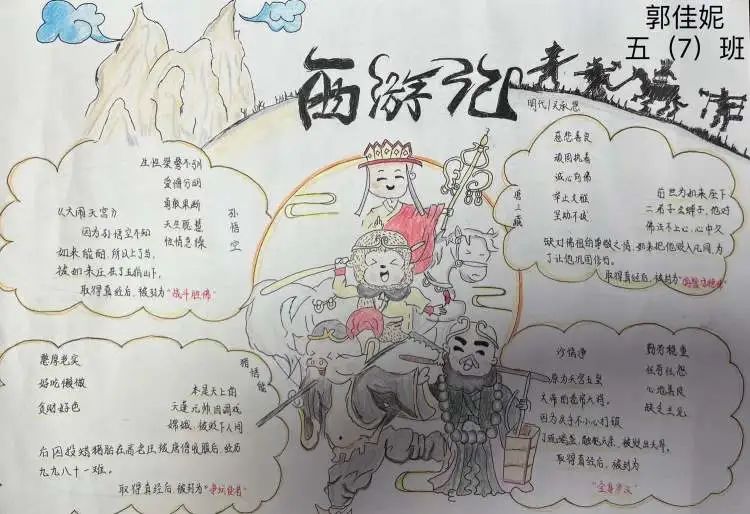 郭佳妮
五（7）班
西游记
明代 | 吴承恩
生性桀骜不驯
爱憎分明
勇敢果断
天生聪慧
性情急躁
孙悟空
《大闹天宫》
因为孙悟空不知
如来能耐，所以上了当，
被如来压在了五指山下。
取得真经后，被封为“战斗胜佛”
慈悲善良
顽固执着
诚心向佛
举止文雅
坚韧不拔
唐三藏
前世为如来座下
二弟子金蝉子，他对
佛法不上心，心中久
缺对佛祖的尊敬之情，如来把他贬入凡间，为
了让他巩固信仰。
取得真经后，被封为
憨厚老实
好吃懒做
贪财好色
猪悟能
本是天上的
天蓬元帅因调戏
嫦娥，被贬下人间
后因投错猪胎在高老庄被唐僧收服后，经历
九九八十一难。
取得真经后，被封为“净坛使者”
沙悟净
勤劳稳重
任劳任怨
心地善良
缺乏主见
原为天宫玉皇
大帝的卷帘大将，
因为失手不小心打破
了琉璃盏，触犯天条，被贬出天界。
取得真经后，被封为
“金身罗汉”